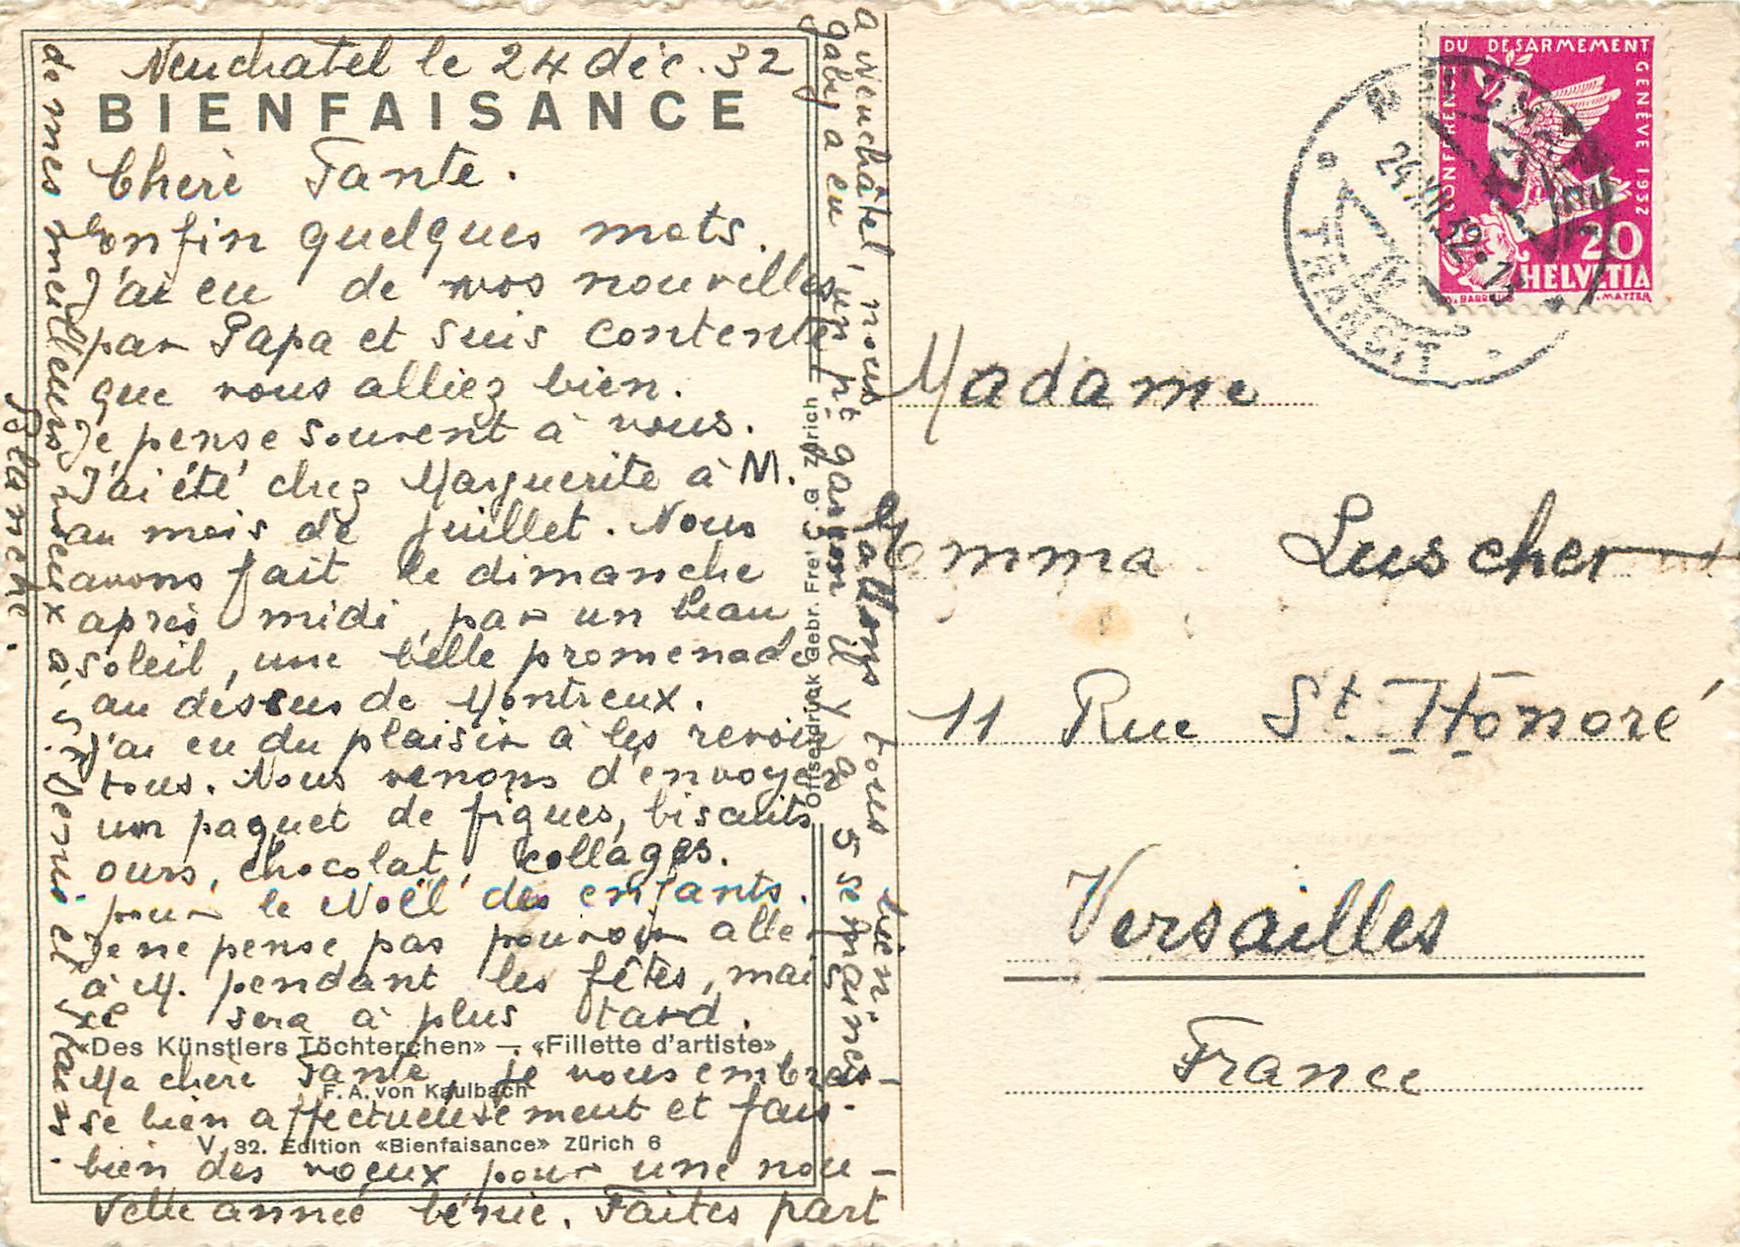 Neuchatel le 24 déc. 32
BIENFAISANCE
Chère Tante.
Enfin quelques mots.
J'ai eu de vos nouvelles
par Papa et suis contente
que vous alliez bien.
Je pense souvent à vous.
J'ai été chez Marguerite à M.
au mois de juillet. Nous
avons fait le dimanche
après midi, par un beau
soleil, une belle promenade
au dessus de Montreux.
J'ai eu du plaisir à les revoir
tous. Nous venons d'envoyer
un paquet de figues, biscuits
ours, chocolat, collages.
pour le Noël des enfants.
Je ne pense pas pouvoir aller
à M. pendant les fêtes, mais
ce sera à plus tard.
«Des Künstlers Töchterchen» — «Fillette d'artiste»
Ma chère Tante, je vous embras-
F. A. von Kaulbach
se bien affectueusement et fais
V. 32. Edition «Bienfaisance» Zürich 6
bien des voeux pour une nou-
velle année bénie. Faites part
de mes meilleurs voeux à
et
Blanche.
à Neuchâtel, nous allons tous bien.
Gaby a eu un pt garçon il y a 5 semaines
Offsetdruck Gebr. Frei A. G. Zürich
CONFERENCE DU DESARMEMENT GENÈVE 1932
20
HELVETIA
24.XII.32
TRANSIT
Madame
Emma Luscher
11 Rue St. Honoré
Versailles
France